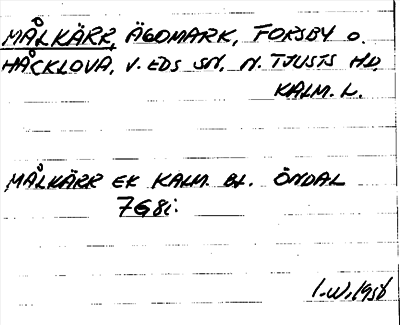 MÅLKÄRR, ÄGOMARK, FORSBY O.
HÄCKLOVA, V. EDS SN, N. TJUSTS HD,
KALM. L.
MÅLKÄRR EK KALM. BL. ÖNDAL
7G8i.
I.W, 1958